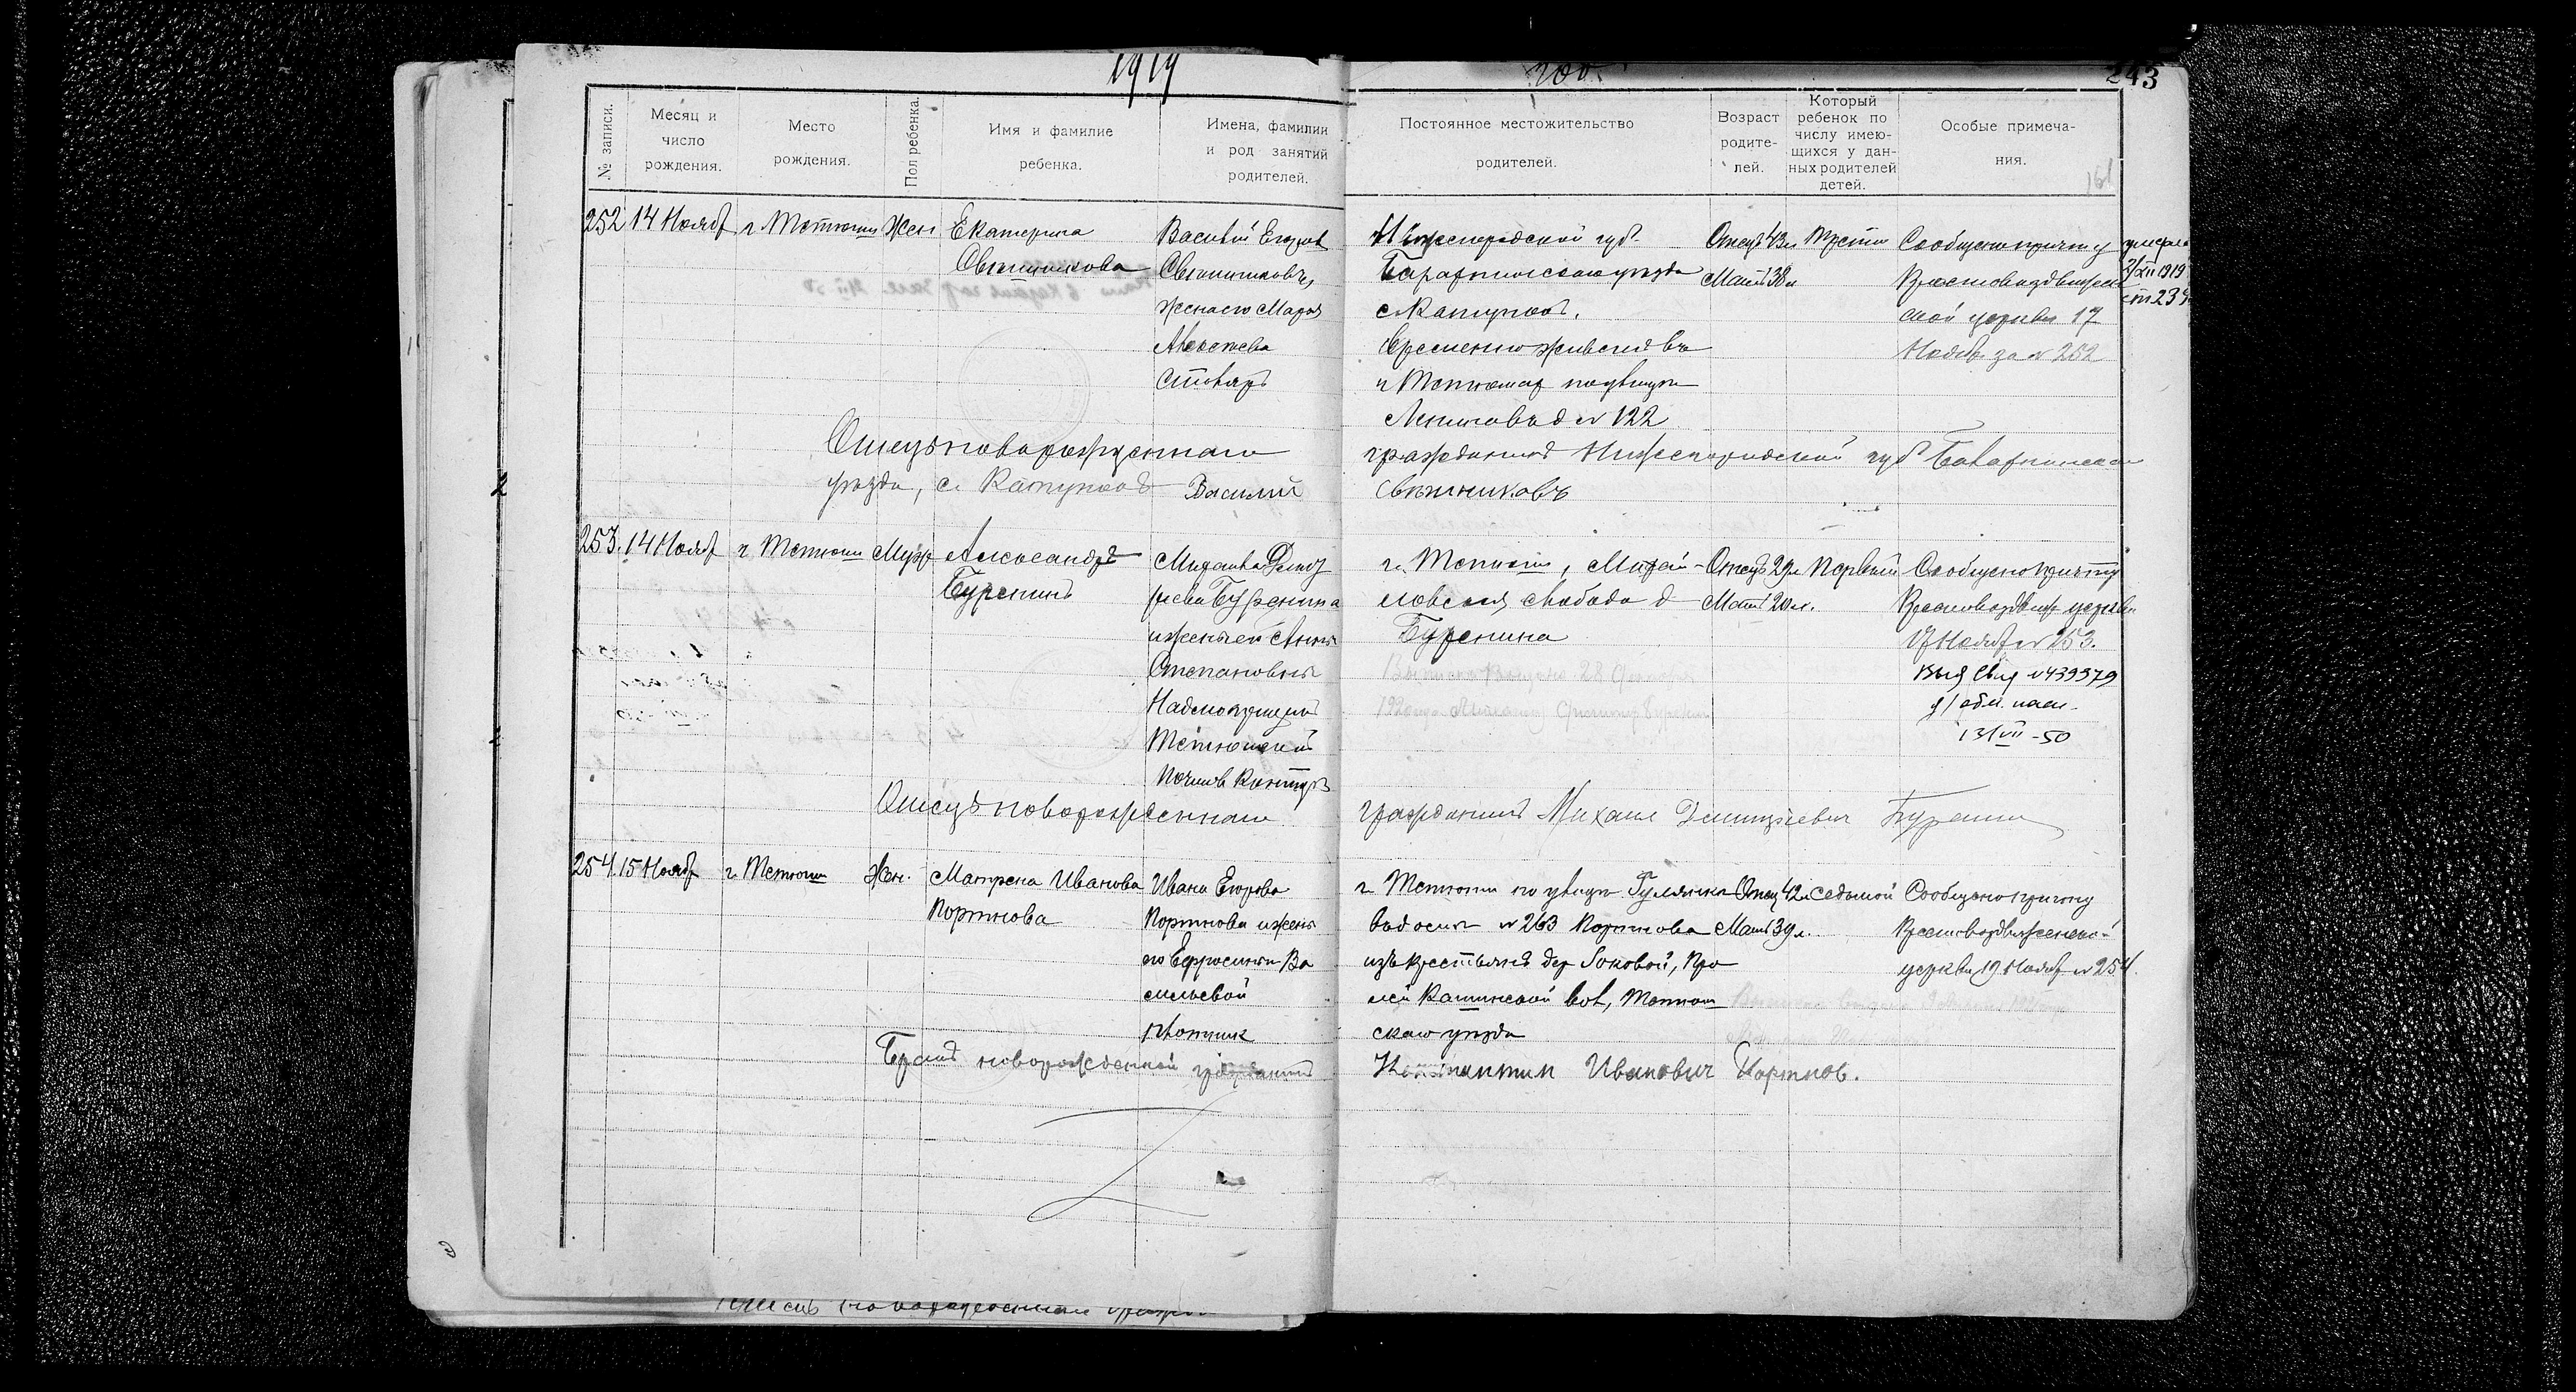 1919
200
243
№ записи.
Месяц и число рождения.
Место рождения.
Пол ребенка.
Имя и фамилие ребенка.
Имена, фамилии и род занятий родителей.
Постоянное местожительство родителей.
Возраст родите- лей.
Который ребенок по числу имею- щихся у дан- ных родителей детей.
Особые примеча- ния.
161
252 14 Ноябр г Тетюши Жен
Екатерина
Свешникова
Василий Егоров
Свешниковъ,
жена его Мария
Алексеева
Столяръ
Нижегородской губ.
Балахнинскаго уезда
с Катунокъ.
Временно живет въ
г Тетюшах по улице
Ленина д № 122
Отецъ 43 л
Мать 38 л
Третий
Сообщено причту
Крестовоздвижен
ской церкви 17
Ноябр за № 252
умерла
2/XII 1919
Отецъ новорожденнаго гражданинъ Нижегородской губ Балахнинскаго
уезда, с. Катунокъ Василий Свешниковъ
253. 14 Ноябр г Тетюши Муж
Александръ
Буренинъ
Михаила Дмит
риева Буренина
и жены ей Анны
Степановны
Надсмотрщикъ
Тетюшской
Почтов Конторы
г. Тетюши, Михай-
ловская слобода д
Буренина
Отецъ 29 л
Мать 20 л.
Первый
Сообщено причту
Крестовоздвиж церкви
17 Ноябр № 253.
Выд Свид №439379
13/VII-50
Отецъ новорожденнаго гражданинъ Михаил Дмитриевич Буренин
254. 15 Ноябр г. Тетюши Жен.
Матрена Иванова
Портнова
Ивана Егорова
Портнова и жены
его Ефросиньи Ва
сильевой
Плотник
г Тетюши по улице Гулянка
въ доме № 263 Портнова
изъ крестьянъ дер
Кашинской вол, Тетюш
скаго уезда
Отец 42 л
Мать 39 л.
Седьмой
Сообщено причту
Крестовоздвиженской
церкви 19 Ноябр № 254.
Братъ новорожденной гражданин Константин Иванович Портнов.